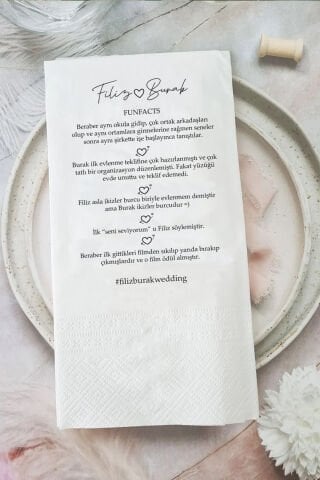 Filiz Burak
FUNFACTS
Beraber aynı okula gidip, çok ortak arkadaşları
olup ve aynı ortamlara girmelerine rağmen seneler
sonra aynı şirkette işe başlayınca tanıştılar.
Burak ilk evlenme teklifine çok hazırlanmıştı ve çok
tatlı bir organizasyon düzenlemişti. Fakat yüzüğü
evde unuttu ve teklif edemedi.
Filiz asla ikizler burcu biriyle evlenmem demiştir
ama Burak ikizler burcudur =)
İlk "seni seviyorum" u Filiz söylemiştir.
Beraber ilk gittikleri filmden sıkılıp yarıda bırakıp
çıkmışlardır ve o film ödül almıştır.
#filizburakwedding